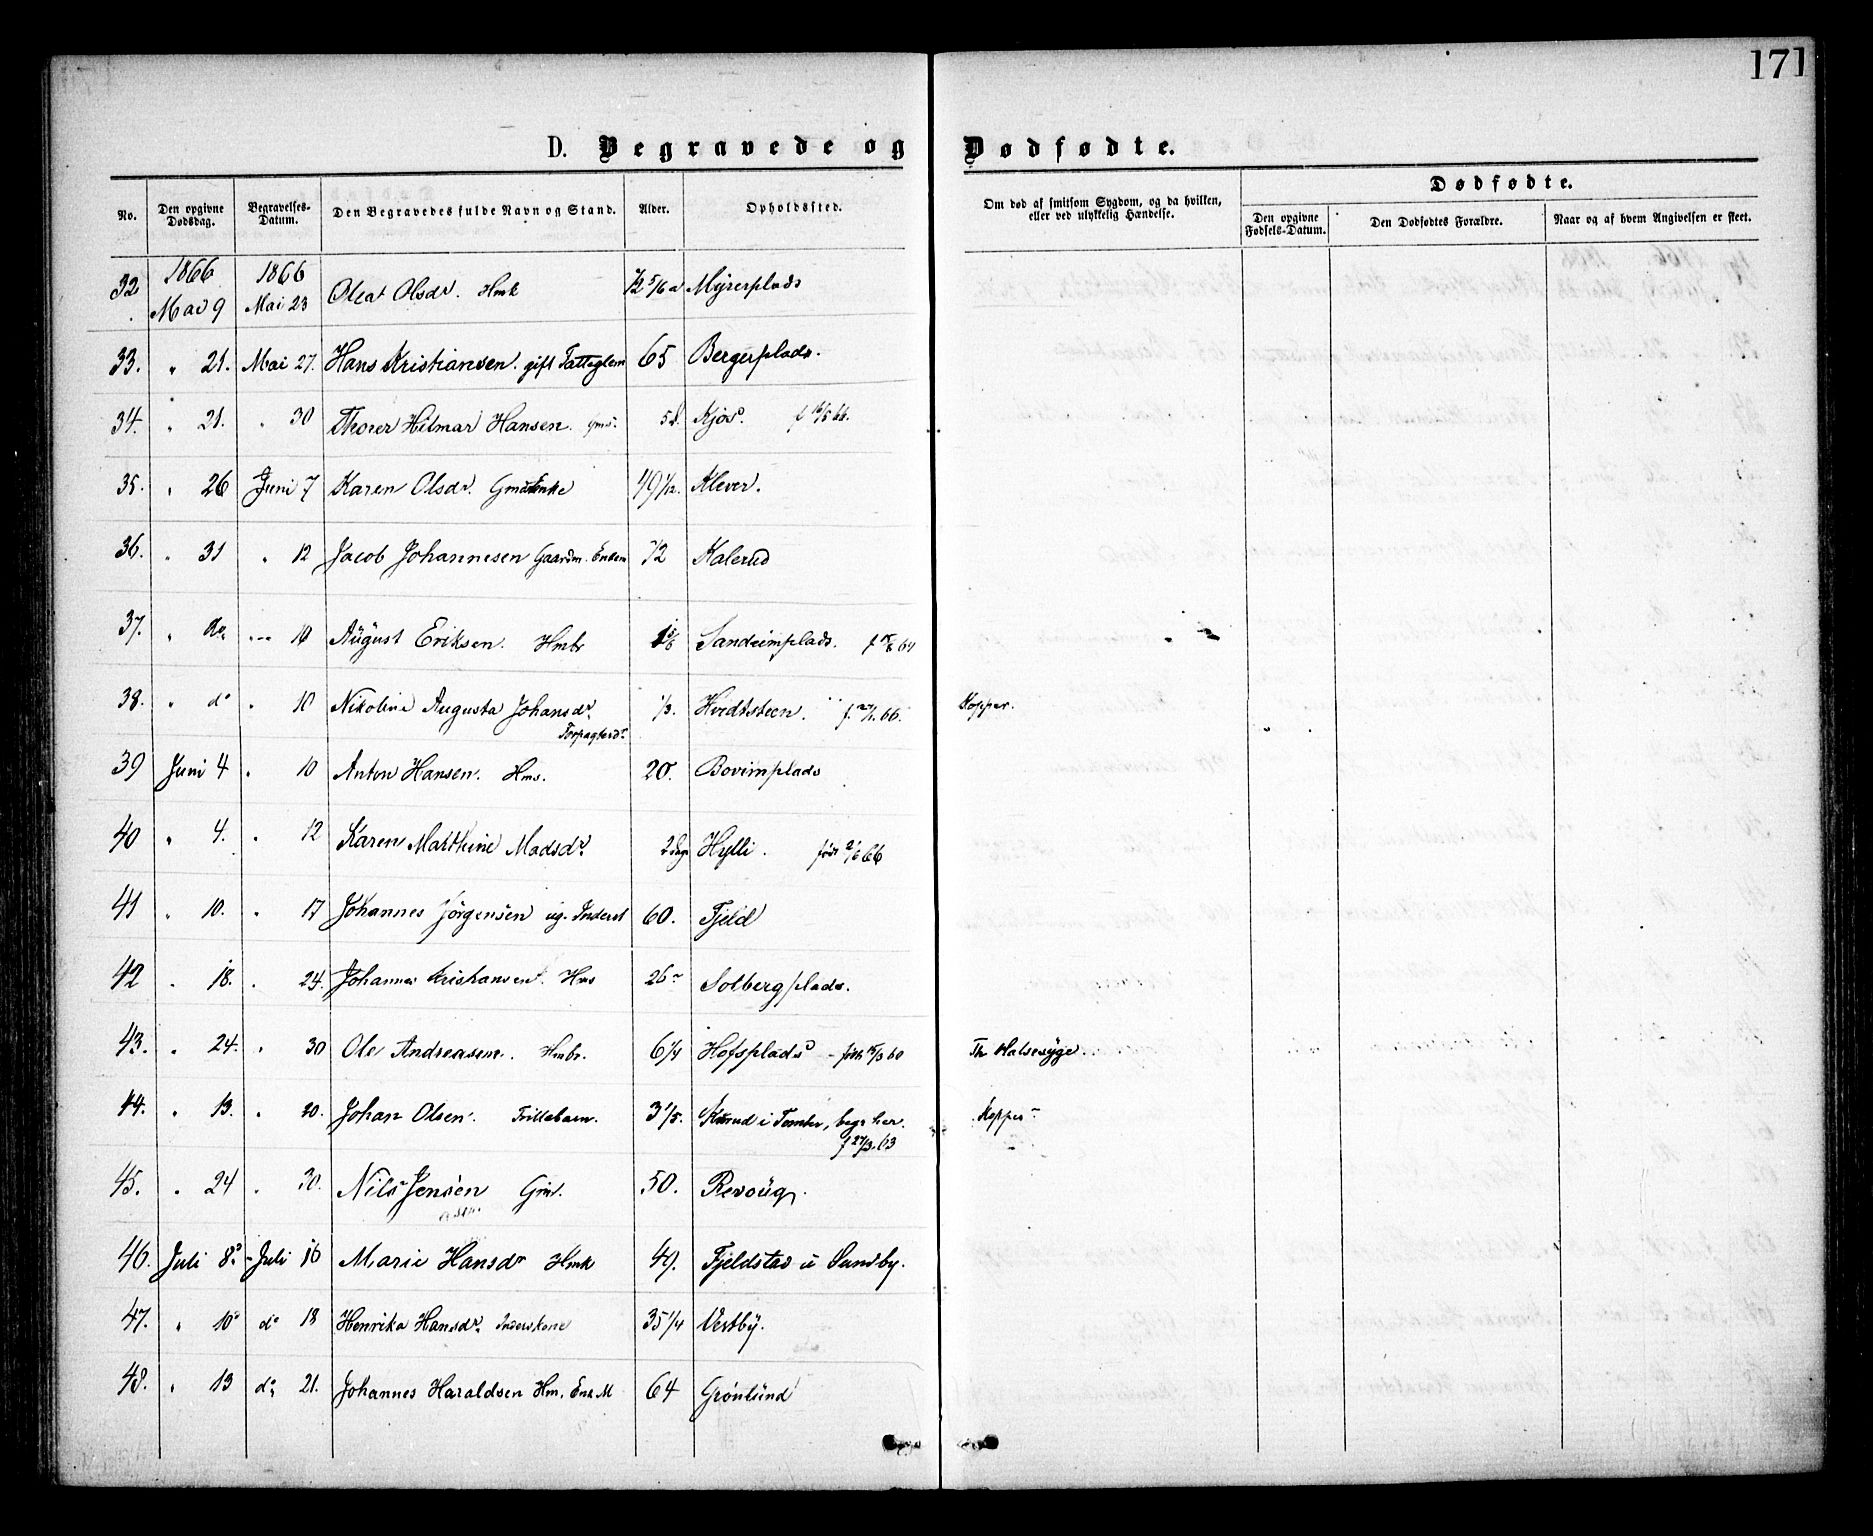 171
D. Begravede og Dødfødte.
No. Den opgivne Dødsdag. Begravelses-Datum. Den Begravedes fulde Navn og Stand. Alder. Opholdssted. Om død af smitsom Sygdom, og da hvilken, eller ved ulykkelig Hændelse. Dødfødte.
Den opgivne Fødsels-Datum. Den Dødfødtes Forældre. Naar og af hvem Angivelsen er skeet.
32 1866 Mai 9 1866 Mai 23 Olea Olsdr. Hmk Myrerplads
33. " 21. Mai 27. Hans Kristiansen. gift Fattiglem 65 Bergerplads.
34. " 21. " 30 Thorer Hilmar Hansen. Gms. Kjos. f 16/5 66.
35. " 26 Juni 7 Karen Olsdr. Gmdsenke 49 1/2. Klever.
36. " 31 " 12 Jacob Johannesen Gaardm. Enkem 72 Kalerud
37. " do " 10 August Eriksen. Hmbr 1 5/6 Sandeimplads.
38. " do " 10 Nikoline Augusta Johansdr. Forpagterdr 1/3. Hvidtsteen. Kopper.
39 Juni 4 " 10 Anton Hansen. Hms. 20. Bovimplads
40 " 4. " 12 Karen Mathine Madsdr. 2 Dage Hylli. født 2/6 66
41 " 10. " 17 Johannes Jörgensen ug. Inderst 60. Fjeld
42 " 18. " 24. Johannes Kristiansen. Hms 26 Solbergplads.
43. " 24. " 30 Ole Andreasen. Hmbr. 6 1/4 Hofsplads - født 15/3 60 Th Halsesyge.
44. " 13. " 20. Johan Olsen. Trillebarn. 3 1/5. i Tomter, begr. her. f 27/3 63 Kopper
45. " 24 " 30. Nils Jensen Gm. 50. Revoug.
46. Juli 8. Juli 16 Marie Hansdr Hmk 49. Fjeldstad u Sundby.
47. " 10 do 18 Henrika Hansdr. Inderskone 35 1/4 Vestby.
48. " 13 do 21. Johannes Haraldsen Hm. Enk.M 64 Grönlund